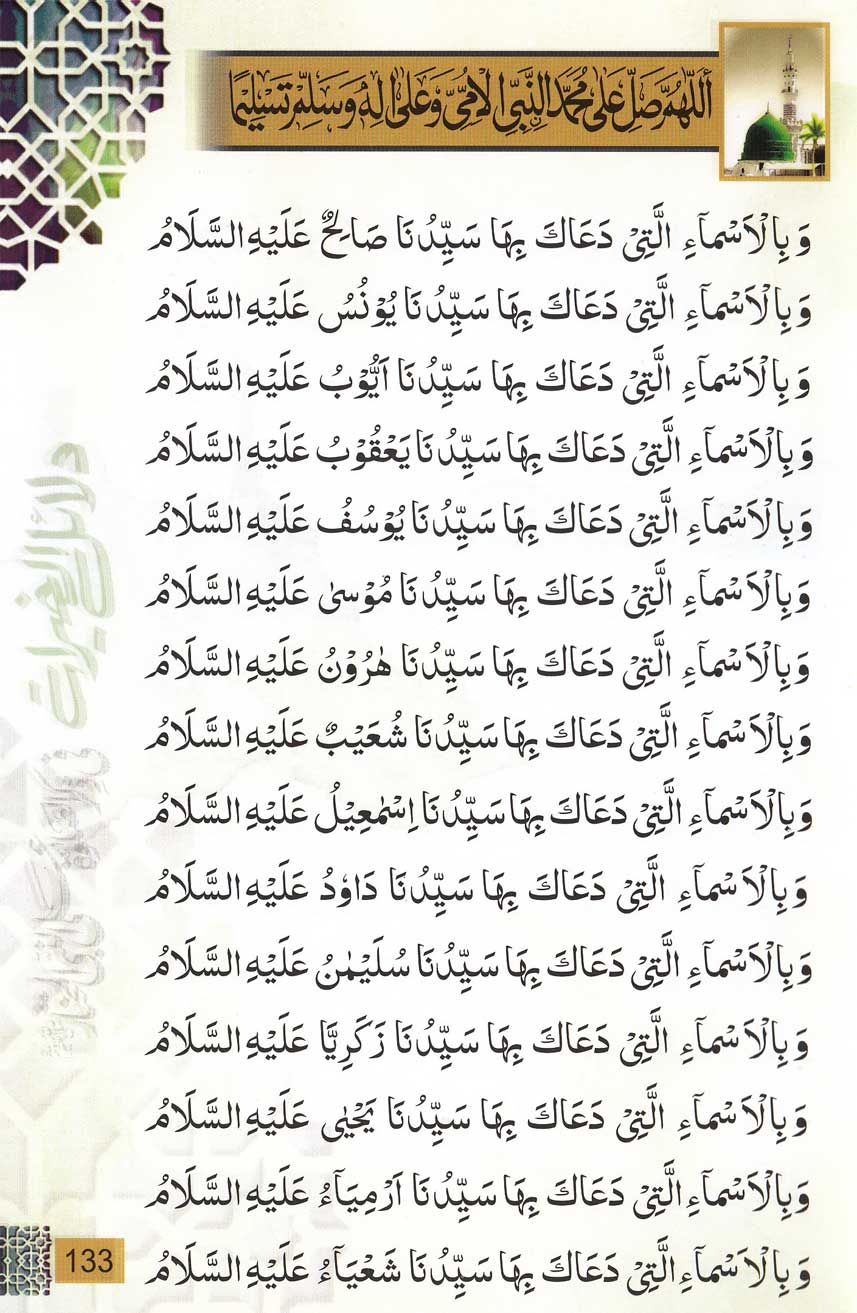 اَللّٰهُمَّ صَلِّ عَلٰى مُحَمَّدِ ۨالنَّبِيِّ الْاُمِّيِّ وَعَلٰى اٰلِهٖ وَسَلِّمْ تَسْلِيْمًا
وَبِالْاَسْمَآءِ الَّتِيْ دَعَاكَ بِهَا سَيِّدُنَا صَالِحٌ عَلَيْهِ السَّلَامُ
وَبِالْاَسْمَآءِ الَّتِيْ دَعَاكَ بِهَا سَيِّدُنَا يُوْنُسُ عَلَيْهِ السَّلَامُ
وَبِالْاَسْمَآءِ الَّتِيْ دَعَاكَ بِهَا سَيِّدُنَا اَيُّوْبُ عَلَيْهِ السَّلَامُ
وَبِالْاَسْمَآءِ الَّتِيْ دَعَاكَ بِهَا سَيِّدُنَا يَعْقُوْبُ عَلَيْهِ السَّلَامُ
وَبِالْاَسْمَآءِ الَّتِيْ دَعَاكَ بِهَا سَيِّدُنَا يُوْسُفُ عَلَيْهِ السَّلَامُ
وَبِالْاَسْمَآءِ الَّتِيْ دَعَاكَ بِهَا سَيِّدُنَا مُوْسىٰ عَلَيْهِ السَّلَامُ
وَبِالْاَسْمَآءِ الَّتِيْ دَعَاكَ بِهَا سَيِّدُنَا هٰرُوْنُ عَلَيْهِ السَّلَامُ
وَبِالْاَسْمَآءِ الَّتِيْ دَعَاكَ بِهَا سَيِّدُنَا شُعَيْبٌ عَلَيْهِ السَّلَامُ
وَبِالْاَسْمَآءِ الَّتِيْ دَعَاكَ بِهَا سَيِّدُنَا اِسْمٰعِيْلُ عَلَيْهِ السَّلَامُ
وَبِالْاَسْمَآءِ الَّتِيْ دَعَاكَ بِهَا سَيِّدُنَا دَاوٗدُ عَلَيْهِ السَّلَامُ
وَبِالْاَسْمَآءِ الَّتِيْ دَعَاكَ بِهَا سَيِّدُنَا سُلَيْمٰنُ عَلَيْهِ السَّلَامُ
وَبِالْاَسْمَآءِ الَّتِيْ دَعَاكَ بِهَا سَيِّدُنَا زَكَرِيَّا عَلَيْهِ السَّلَامُ
وَبِالْاَسْمَآءِ الَّتِيْ دَعَاكَ بِهَا سَيِّدُنَا يَحْيٰى عَلَيْهِ السَّلَامُ
وَبِالْاَسْمَآءِ الَّتِيْ دَعَاكَ بِهَا سَيِّدُنَا اَرْمِيَآءُ عَلَيْهِ السَّلَامُ
وَبِالْاَسْمَآءِ الَّتِيْ دَعَاكَ بِهَا سَيِّدُنَا شَعْيَآءُ عَلَيْهِ السَّلَامُ
دلائل الخيرات
133